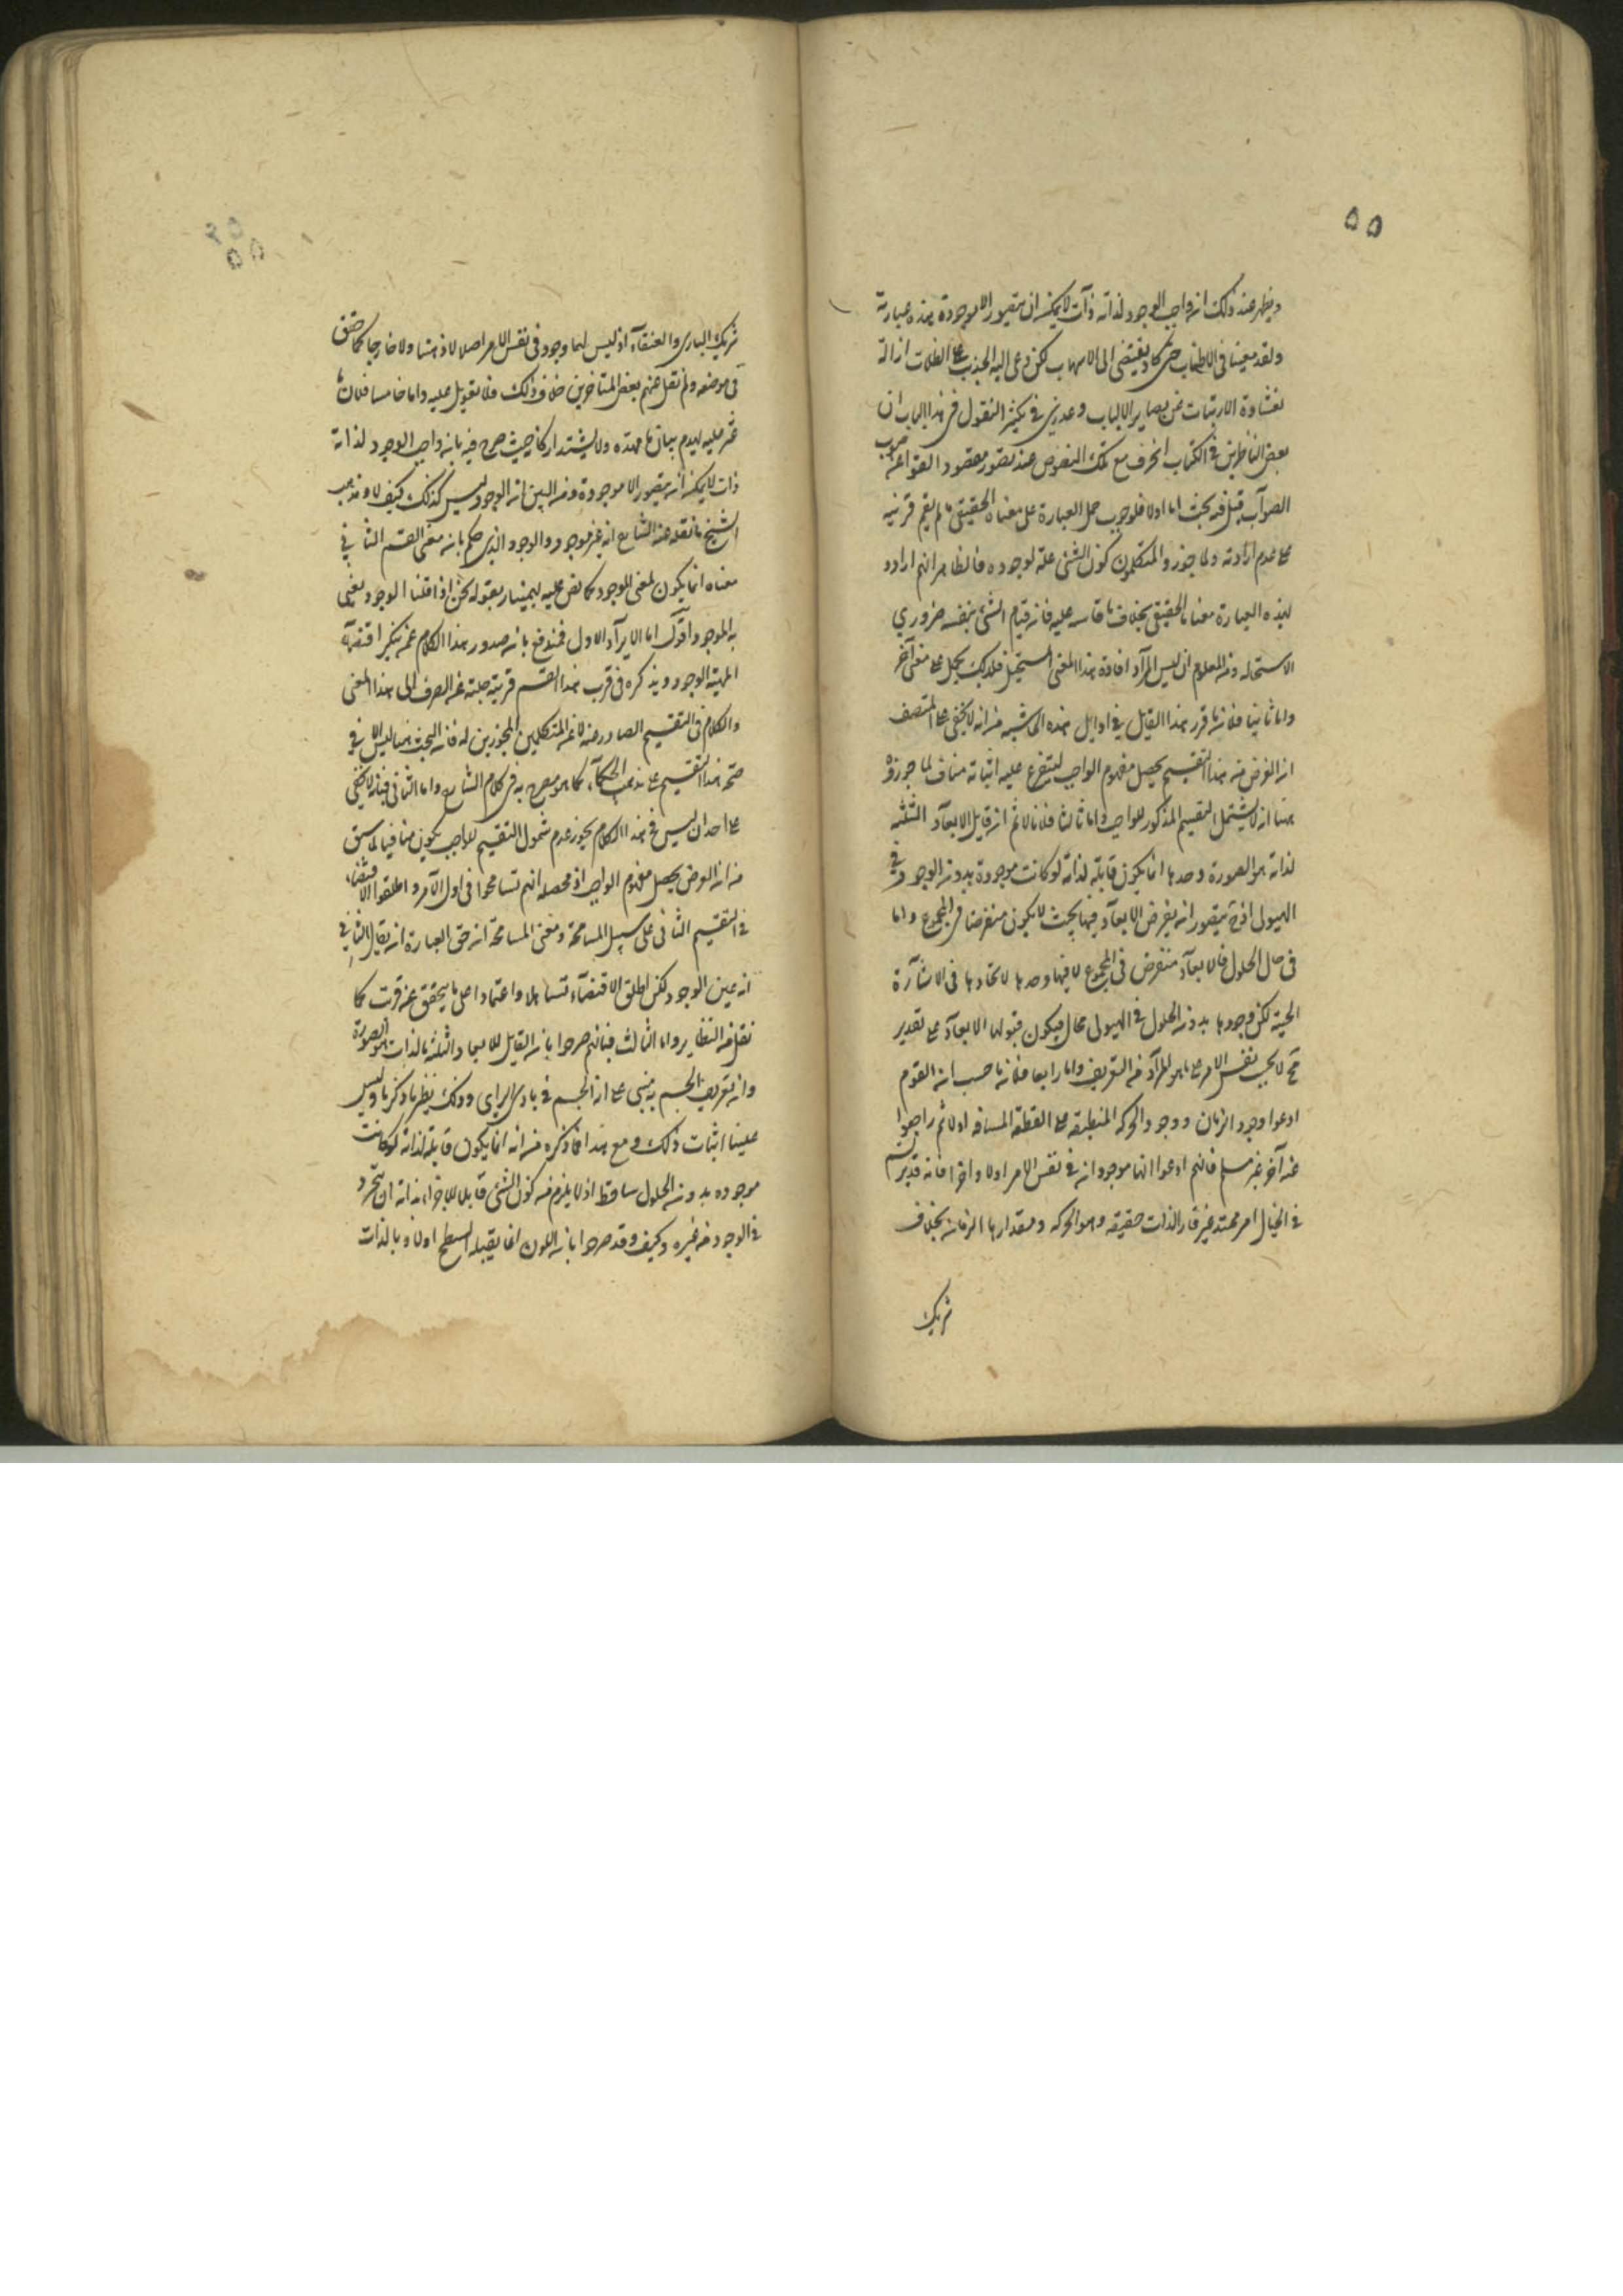 ٥٥
ويظهر عند ذلك ان واجب الوجود لذاته ذات لا يمكن ان يتصور الا موجودة هذه عبارته
ولقد معنا في الاطناب حتى كاد يفضي الى الاسهاب لكن دعى اليه الجذب على الظلمات ازالة
لغشاوة الارتياب عن بصاير الالباب وعذري في تكثير النقول في هذا الباب ان
بعض الناظرين في الكتاب انحرف مع تلك النصوص عند تصور مقصود القوم عن صوب
الصواب قيل فيه بحث اما اولا فلوجوب حمل العبارة على معناه الحقيقي ما لم يقم قرينة
على عدم ارادته ولما جوز المتكلمون كون الشئ علة لوجوده فالظاهر انهم ارادوا
بهذه العبارة معناها الحقيقي بخلاف ما قاسه عليه فان قيام الشئ بنفسه ضروري
الاستحالة ومن المعلوم ان ليس المراد افادة هذا المعنى المستحيل فلذلك يحمل على معنى آخر
واما ثانيا فلان ما قرر هذا القايل في اوايل هذه الحاشية من انه لا يخفى على المتصف
ان الغرض من هذا التقسيم تحصيل مفهوم الواجب ليتفرع عليه اثباته مناف لما جوزه
ههنا ان لا يشتمل التقسيم المذكور للواجب واما ثالثا فلانا لا نم ان قابل الابعاد الثلثة
لذاته هو الصورة وحدها انما يكون قابلة لذاته لو كانت موجودة بدون الوجود في
الهيولى اذ ح يتصور ان يفرض الابعاد فيها بحيث لا يكون منفرضا في المجموع واما
في حال الحلول فالابعاد منفرض في المجموع لا فيها وحدها لاتحادها في الاشارة
الحسية لكن وجودها بدون الحلول في الهيولى محال فيكون قبولها الابعاد على تقدير
مح لا بحسب نفس الامر على ما هو المراد من التعريف واما رابعا فلان ما حسب ان القوم
ادعوا وجود الزمان ووجود الحركة المنطبقة على القطعة المسافة اولا ثم راجعوا
عنه آخر غير مسلم فانهم ادعوا انها موجودان في نفس الامر اولا واخرا فانه قد يرتسم
في الخيال امر ممتد غير قار الذات حقيقة وهو الحركة ومقدارها الزمان بخلاف
شريك
شريك الباري والعنقاء اذ ليس لهما وجود في نفس الامر اصلا لا ذهنا ولا خارجا كما حقق
في موضعه ولم نقل عنهم بعض المتاخرين خلاف ذلك فلا تعويل عليه واما خامسا فلان ما
عثر عليه ليهدم بنيان ما مهده ولا يشتد اركانه حيث صرح فيه بان واجب الوجود لذاته
ذات لا يمكن ان يتصور الا موجودة ومن البين ان الوجود ليس كذلك كيف لا ومذهب
الشيخ ما نقله عنه الشارح انه غير موجود والوجود الذي حكم بانه معنى القسم الثاني
معناه انما يكون لمعنى الموجود كما نص عليه بهمنيار بقوله نحن اذا قلنا الوجود يعني
به الموجود اقول اما الايراد الاول فمندفع بان صدور هذا الكلام عمن ينكر اقتضاء
المهية الوجود ويذكره في قرب هذا القسم قرينة جلية على الصرف الى هذا المعنى
والكلام في التقسيم الصادر عنه لا عن المتكلمين المجوزين له فان البحث ههنا ليس الا في
صحة هذا التقسيم على مذهب الحكماء كما هو مصرح به في كلام الشارح واما الثاني فبانه لا يخفى
على احد ان ليس في هذا الكلام تجويز عدم شمول التقسيم للواجب يكون منافيا لما سبق
من ان الغرض تحصيل مفهوم الواجب اذ محصله انهم تسامحوا في اول الامر واطلقوا الاقتضاء
في التقسيم الثاني على سبيل المسامحة ومعنى المسامحة ان حق العبارة ان يقال الثاني
انه عين الوجود لكن اطلق الاقتضاء تساهلا واعتمادا على ما يحقق عن قرب كما
نقل من النظاير واما الثالث فبانهم صرحوا بان القابل للابعاد الثلثة بالذات هو الصورة
وان تعريف الجسم به مبني على ان الجسم في بادي الراي وذلك نظير ما ذكرنا وليس
علينا اثبات ذلك ومع هذا فما ذكره من انه انما يكون قابلة لذاته لو كانت
موجوده بدون الحلول ساقط اذ لا يلزم من كون الشئ قابلا للاخر بذاته ان يتجرد
في الوجود عن غيره وكيف وقد صرحوا بان اللون انما يقبله السطح اولا وبالذات